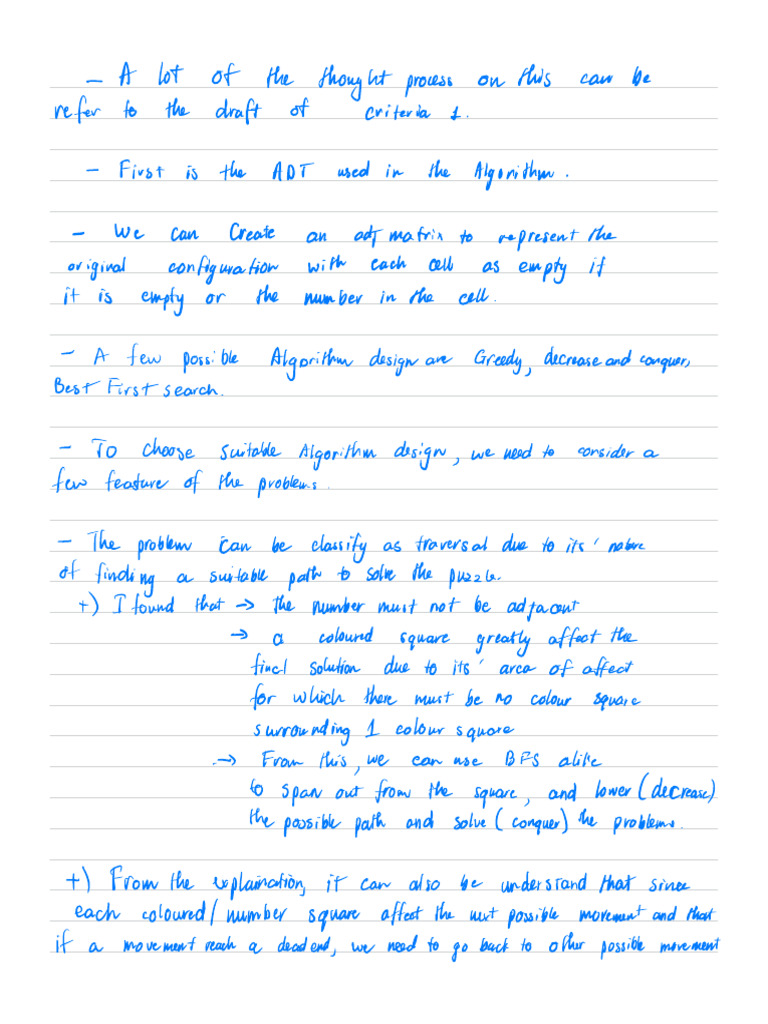 - A lot of the thought process on this can be
refer to the draft of criteria 1.
- First is the ADT used in the Algorithm.
- We can Create an adj matrix to represent the
original configuration with each cell as empty if
it is empty or the number in the cell.
- A few possible Algorithm design are Greedy, decrease and conquer,
Best First search.
- To choose suitable Algorithm design, we need to consider a
few feature of the problems.
- The problem can be classify as traversal due to its' nature
of finding a suitable path to solve the puzzle.
+) I found that → the number must not be adjacent
→ a coloured square greatly affect the
final solution due to its' area of affect
for which there must be no colour square
surrounding 1 colour square
→ From this, we can use BFS alike
to span out from the square, and lower (decrease)
the possible path and solve (conquer) the problems.
+) From the explaination, it can also be understand that since
each coloured/number square affect the next possible movement and that
if a movement reach a deadend, we need to go back to other possible movement